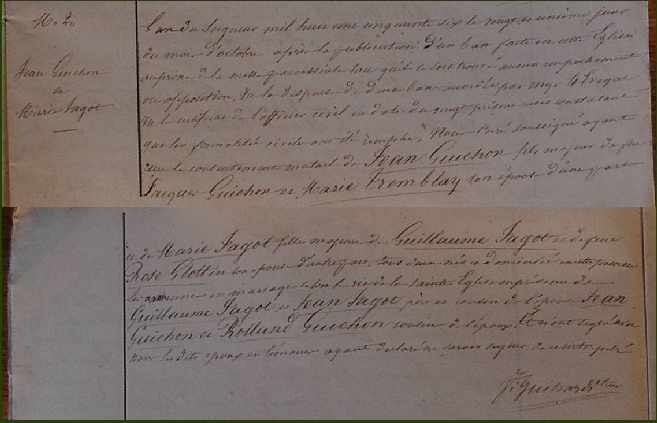 No 20
Jean Guichon
et
Marie Jagot
L'an du Seigneur mil huit cent cinquante six le vingt et unième jour
du mois d'octobre après la publication d'un ban faite en cette Eglise
au prone de la messe paroissiale sans qu'il se soit trouvé aucun empêchement
ou opposition. Vu la dispense de deux bans accordée par Mgr l'Evêque
Vu le certificat de l'officier civil en date du vingt présent mois constatant
que les formalités civiles ont été remplies, Nous Curé soussigné ayant
reçu le consentement mutuel de Jean Guichon fils majeur de feu
Jacques Guichon et Marie Tremblay son épouse d'une part
et de Marie Jagot fille majeure de Guillaume Jagot et de feue
Rose Glottin son épouse d'autre part, tous deux nés et domiciliés en cette paroisse
les avons unis en mariage selon le rit de la Sainte Eglise en présence de
Guillaume Jagot et Jean Jagot père et cousin de l'épouse Jean
Guichon et Rolland Guichon cousin de l'époux. Et n'ont signé avec
nous les dits époux et témoins ayant déclaré ne savoir signer de ce interpellé